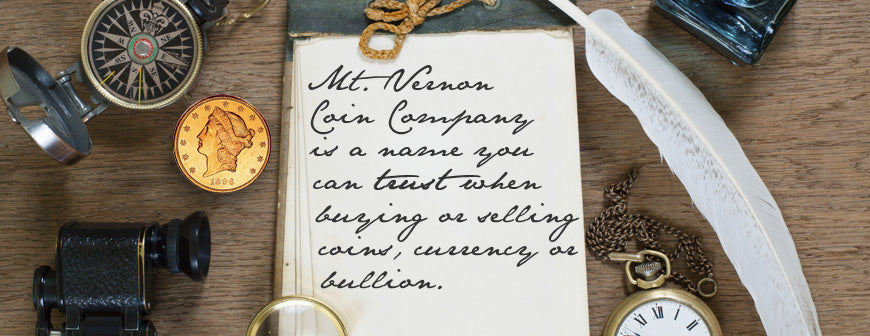 Mt. Vernon
Coin Company
is a name you
can trust when
buying or selling
coins, currency or
bullion.
1896
XII
I